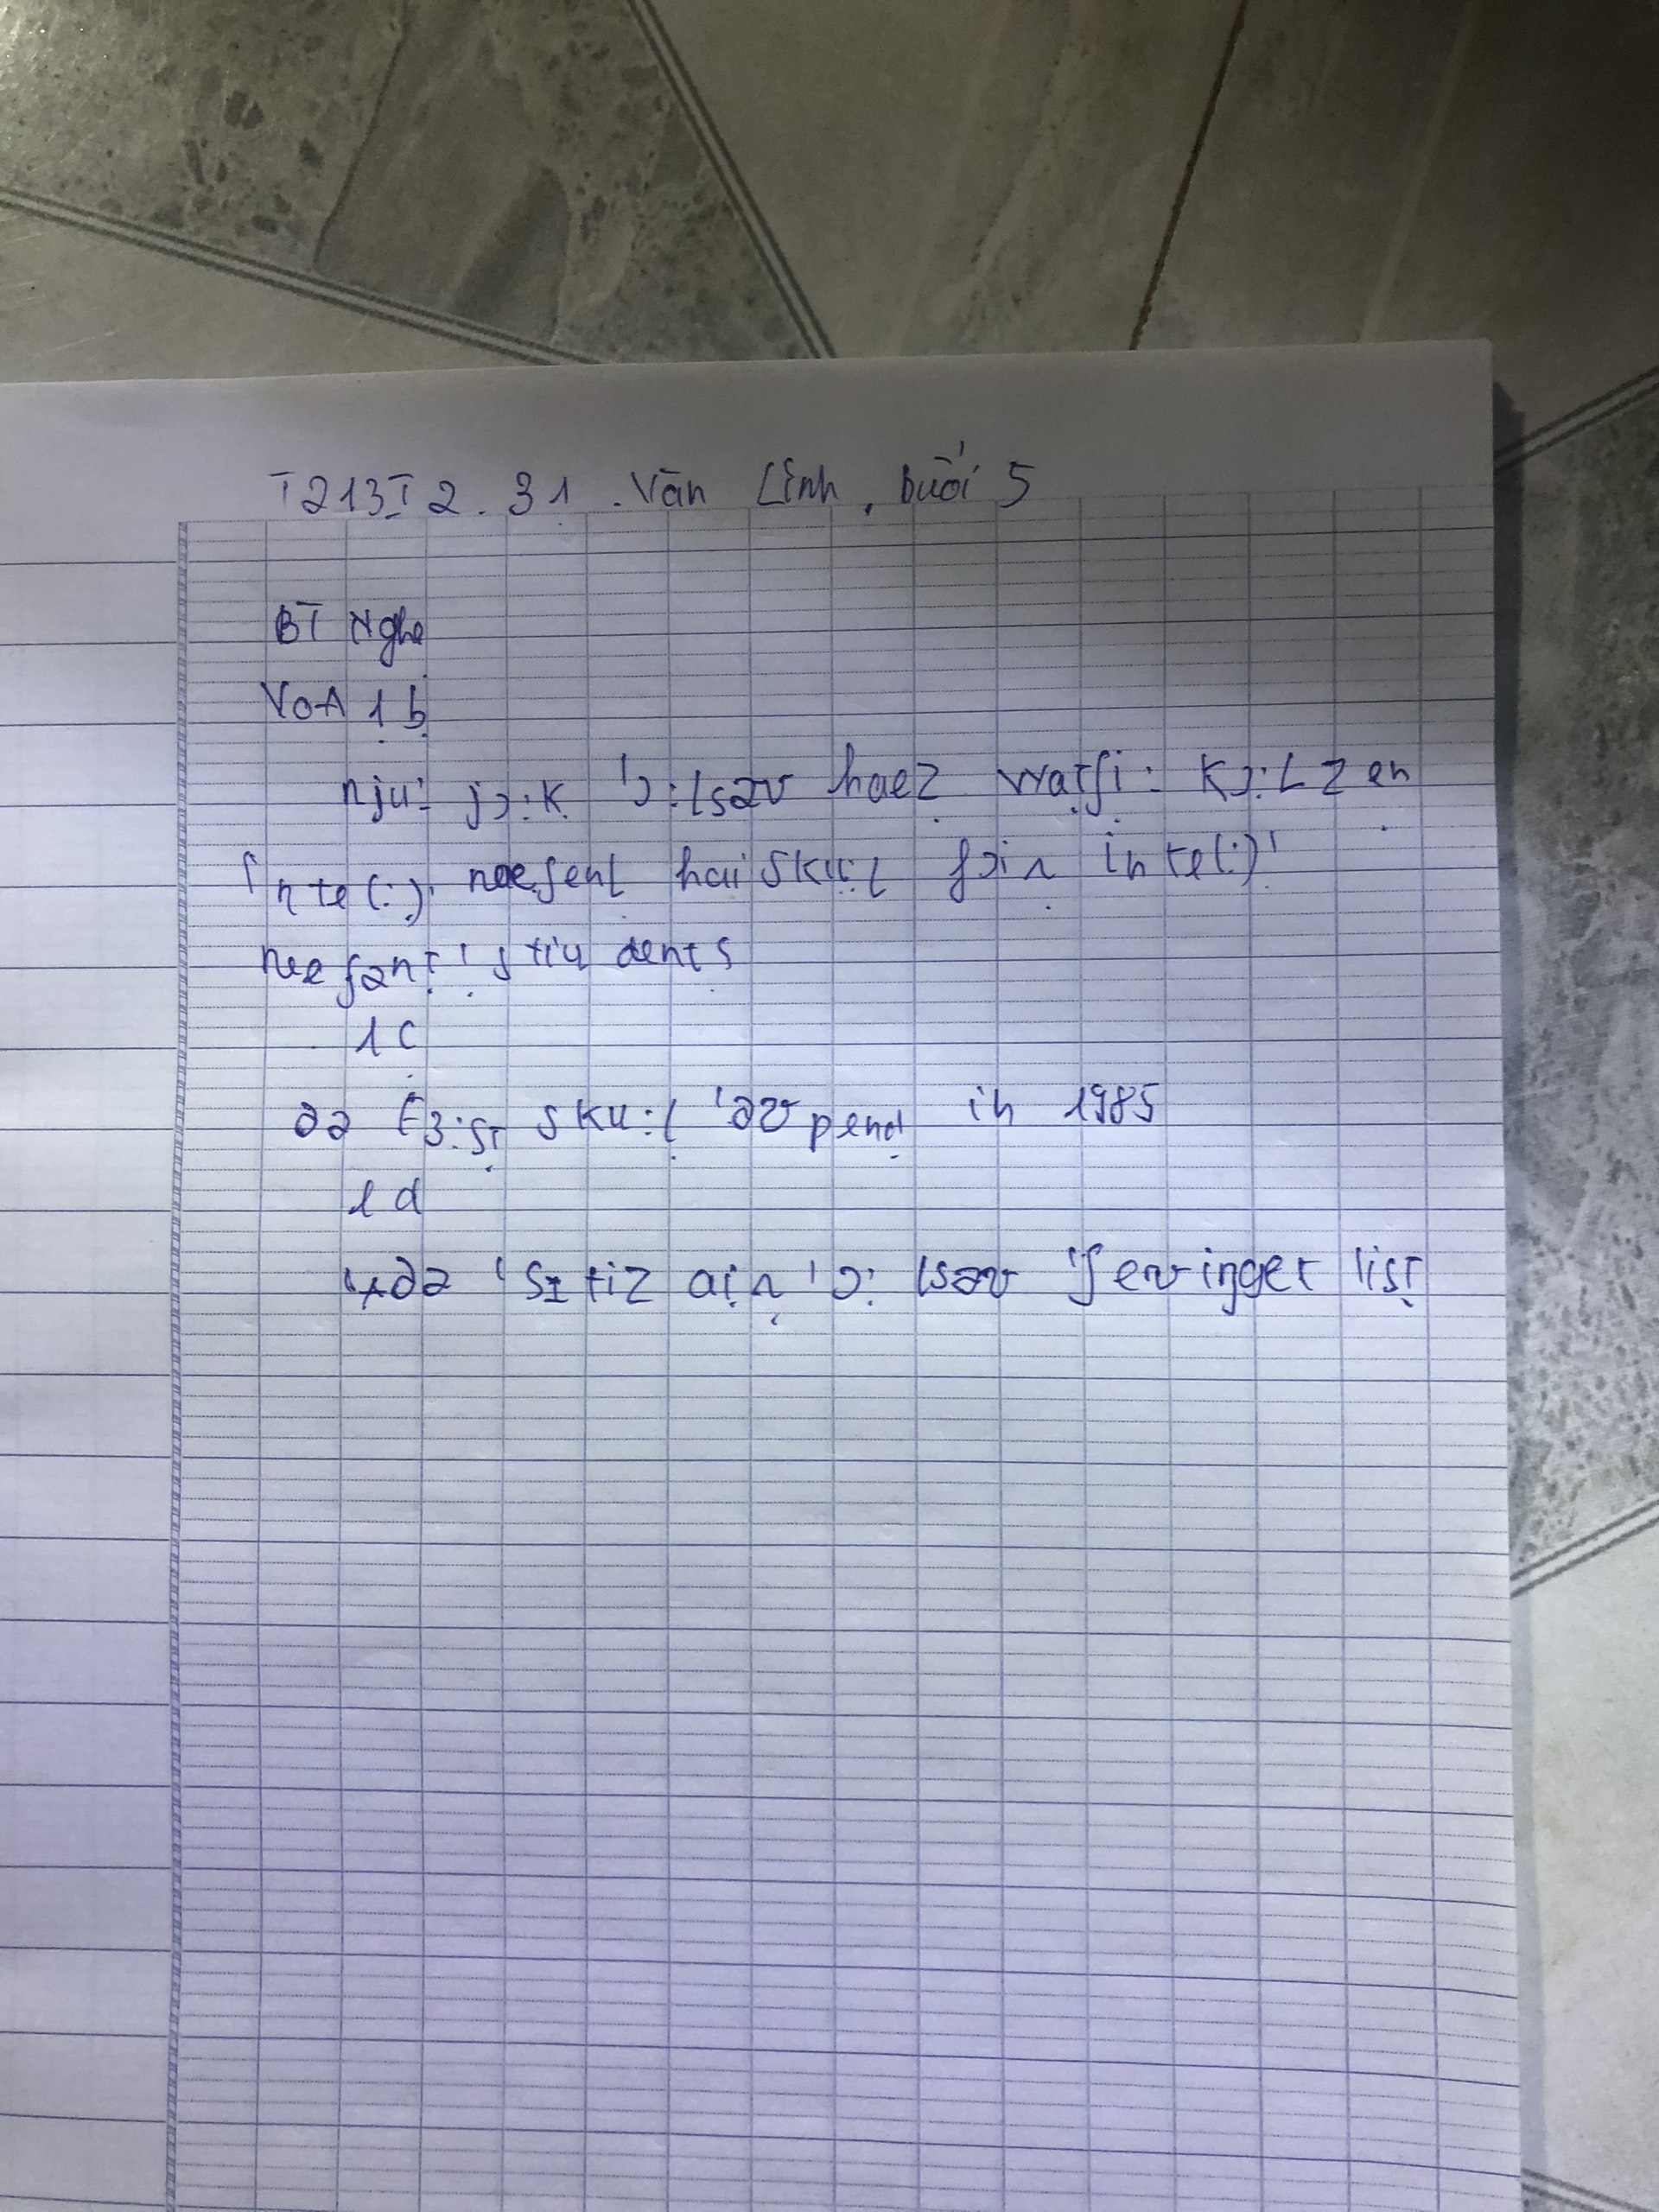 T213T2.31. Văn Linh, buổi 5
BT Nghe
VOA 1b
nju: jɔ:k 'ɔ:lsəʊ hæz watʃi: kɔ:lz en
inte(:)' næʃenl hai sku:l fɔin inte(:)'
næʃənt 'stiu dents
1c
ðə fɜ:st sku:l 'əʊpend in 1985
1d
ðə 'sɪtiz ain 'ɔ:lsəʊ 'ʃevinget list